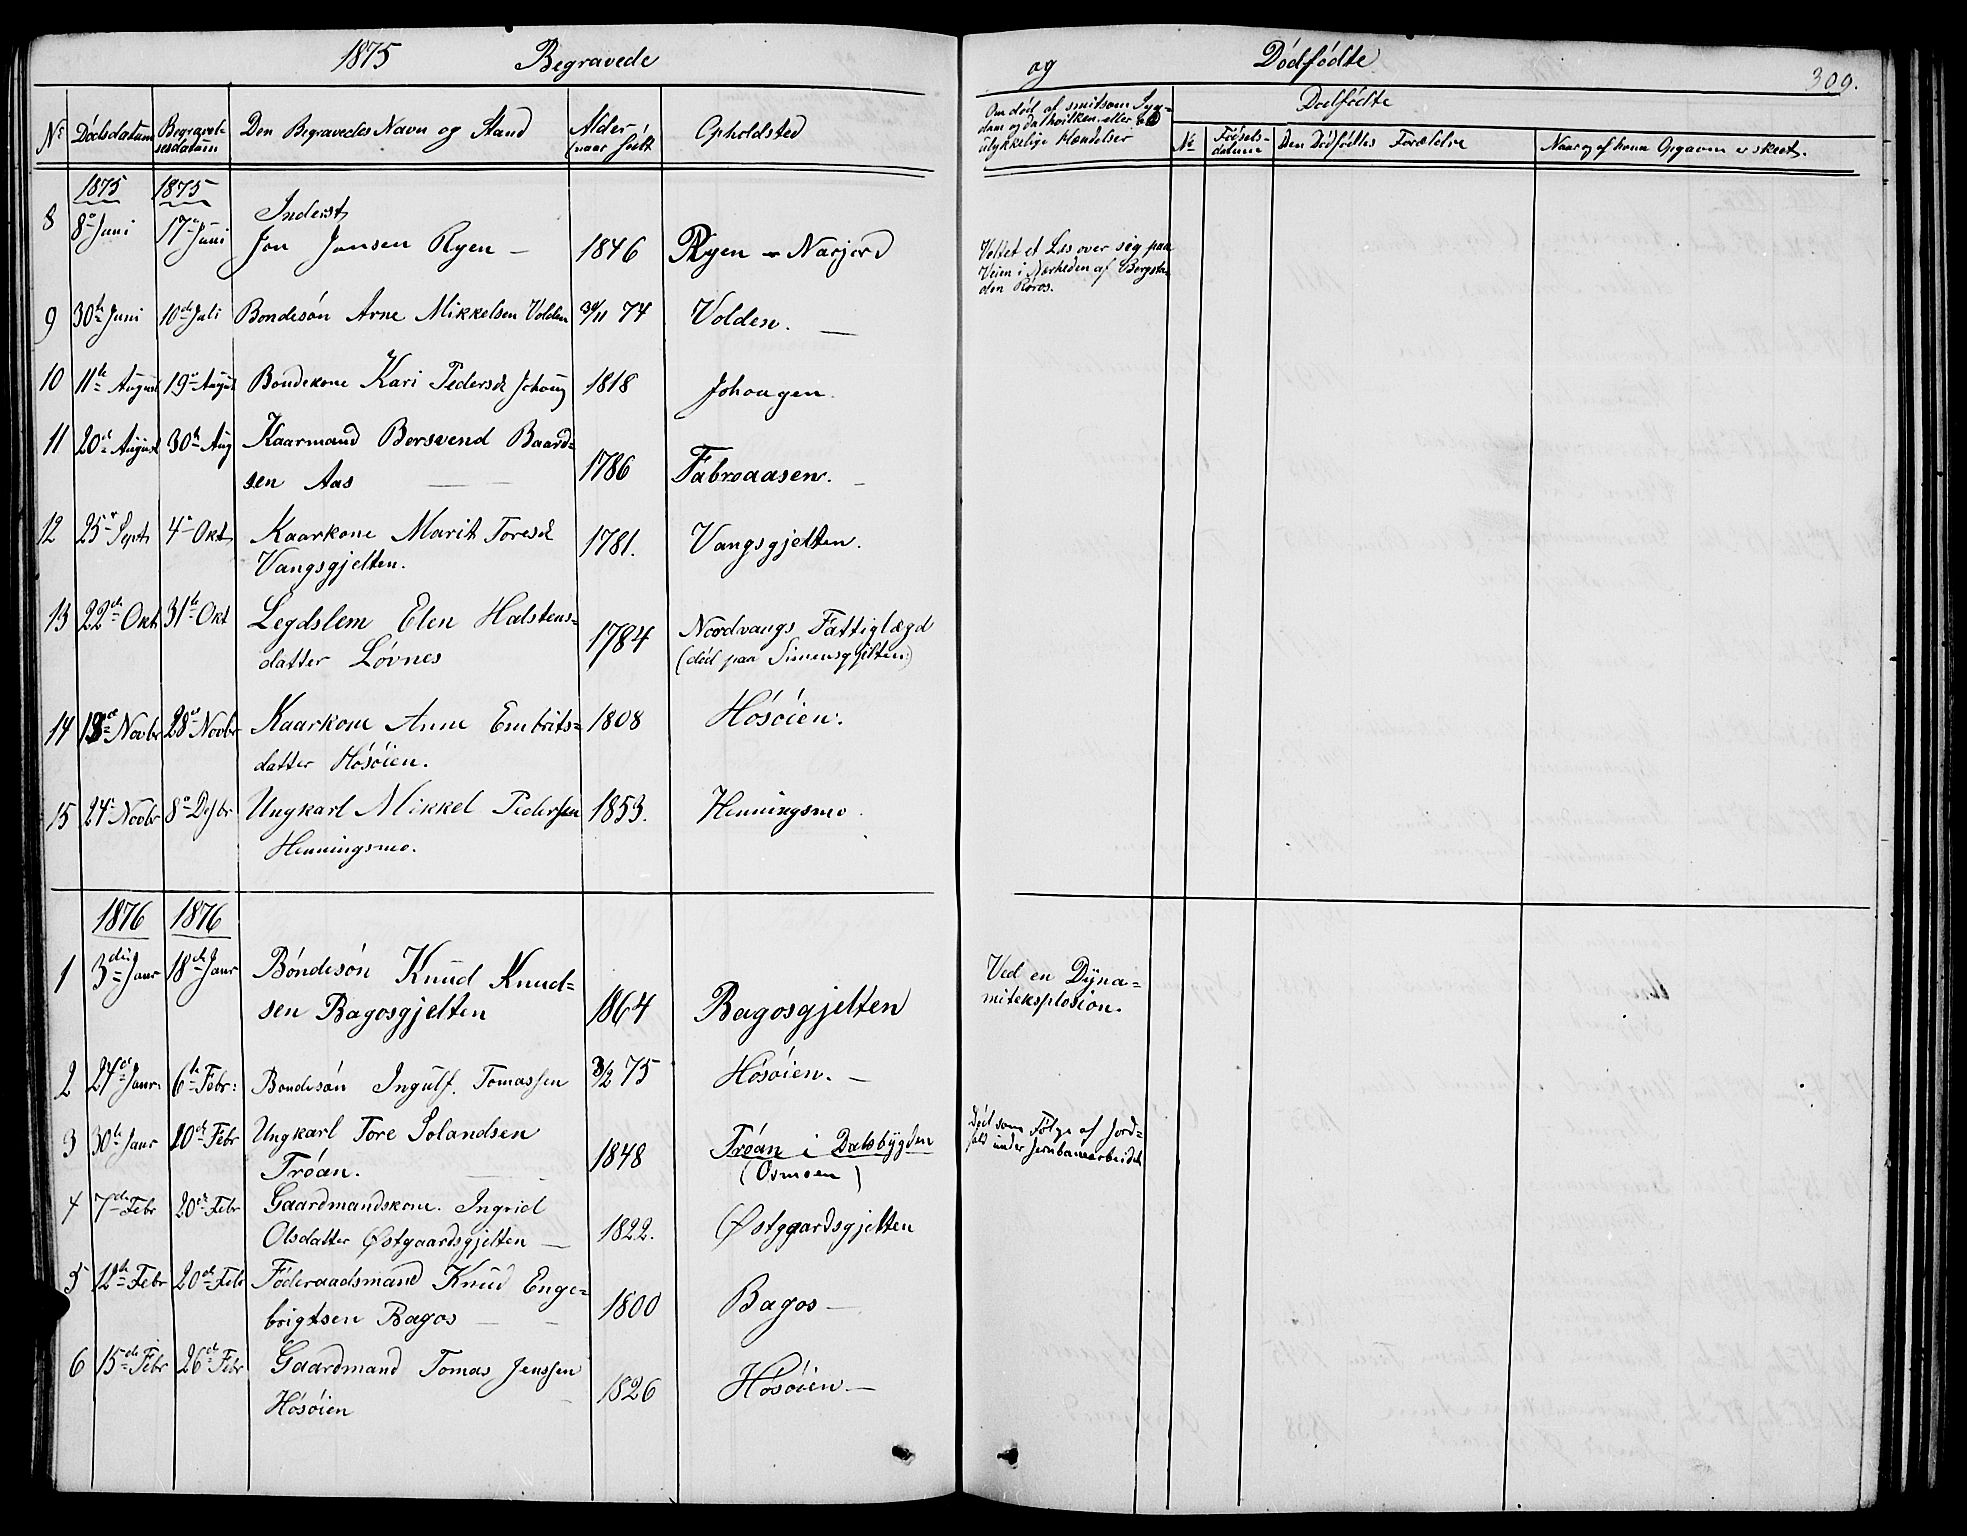 1875 Begravede og Dödfödte 309.
Nr Dödsdatum Begravelsesdatum Den Begravedes Navn og Stand Alder (naar födt Opholdsted
Om död af smitsom Syg-
dom og da hvilken, eller
ulykkelige Hændelser
Dödfödte
No Födsels-
datum Den Dödfödtes Forældre Naar og af hvem Opgaven er skeet.
1875 1875
8 8de Juni 17de Juni Inderst
Jon Jonsen Ryen — 1846 Ryen - Narjord
Veltet et Læs over sig paa
Veien i Nærheden af Bergsta-
den Röros.
9 30te Juni 10de Juli Bondesön Arne Mikkelsen Volden 30/11 74 Volden. —
10 11te August 19de August Bondekone Kari Pedersd. 1818 Johaugen.
11 20de August 30te Aug Kaarmand Bersvend Baard-
sen Aas — — 1786 Fabroaasen. —
12 25de Sept 4de Okt Kaarkone Marit Toresd
Vangsgjelten. 1781. Vangsgjelten.
13 22de Okt 31te Okt Legdslem Elen Halstens-
datter Lövnes 1784 Nordvangs Fattiglægd
(död paa Simensgjelten.)
14 Novbr 28de Novbr Kaarkone Anne Embrits-
datter Hösöien. 1808 Hösöien.
15 24de Novbr 8de Desbr Ungkarl Mikkel Pedersen
Henningsmo. 1853. Henningsmo.
1876 1876
1 3die Janr 18de Janr Böndesön Knud Knud-
sen Bagosgjelten 1864 Bagosgjelten
Ved en Dyna-
miteksplosion.
2 27de Janr. 6te Febr: Bondesön Ingulf. Tomassen 3/2 75 Hösöien. —
3 30te Janr 20de Febr Ungkarl Tore Solandsen
Tröan. 1848 Tröan i Dalsbygden
(Osmoen)
Död som Fölge af Jord-
fald under Jernbanearbeidet
4 7de Febr 20de Febr Gaardmandskone. Ingrid
Olsdatter Östgaardsgjelten — 1822. Östgaardsgjelten
5 12te Febr 20de Febr Föderaadsmand Knud Enge-
brigtsen Bagos — — 1800 Bagos —
6 15de Febr 26de Febr Gaardmand Tomas Jenssen
Hösöien — 1826 Hösöien —